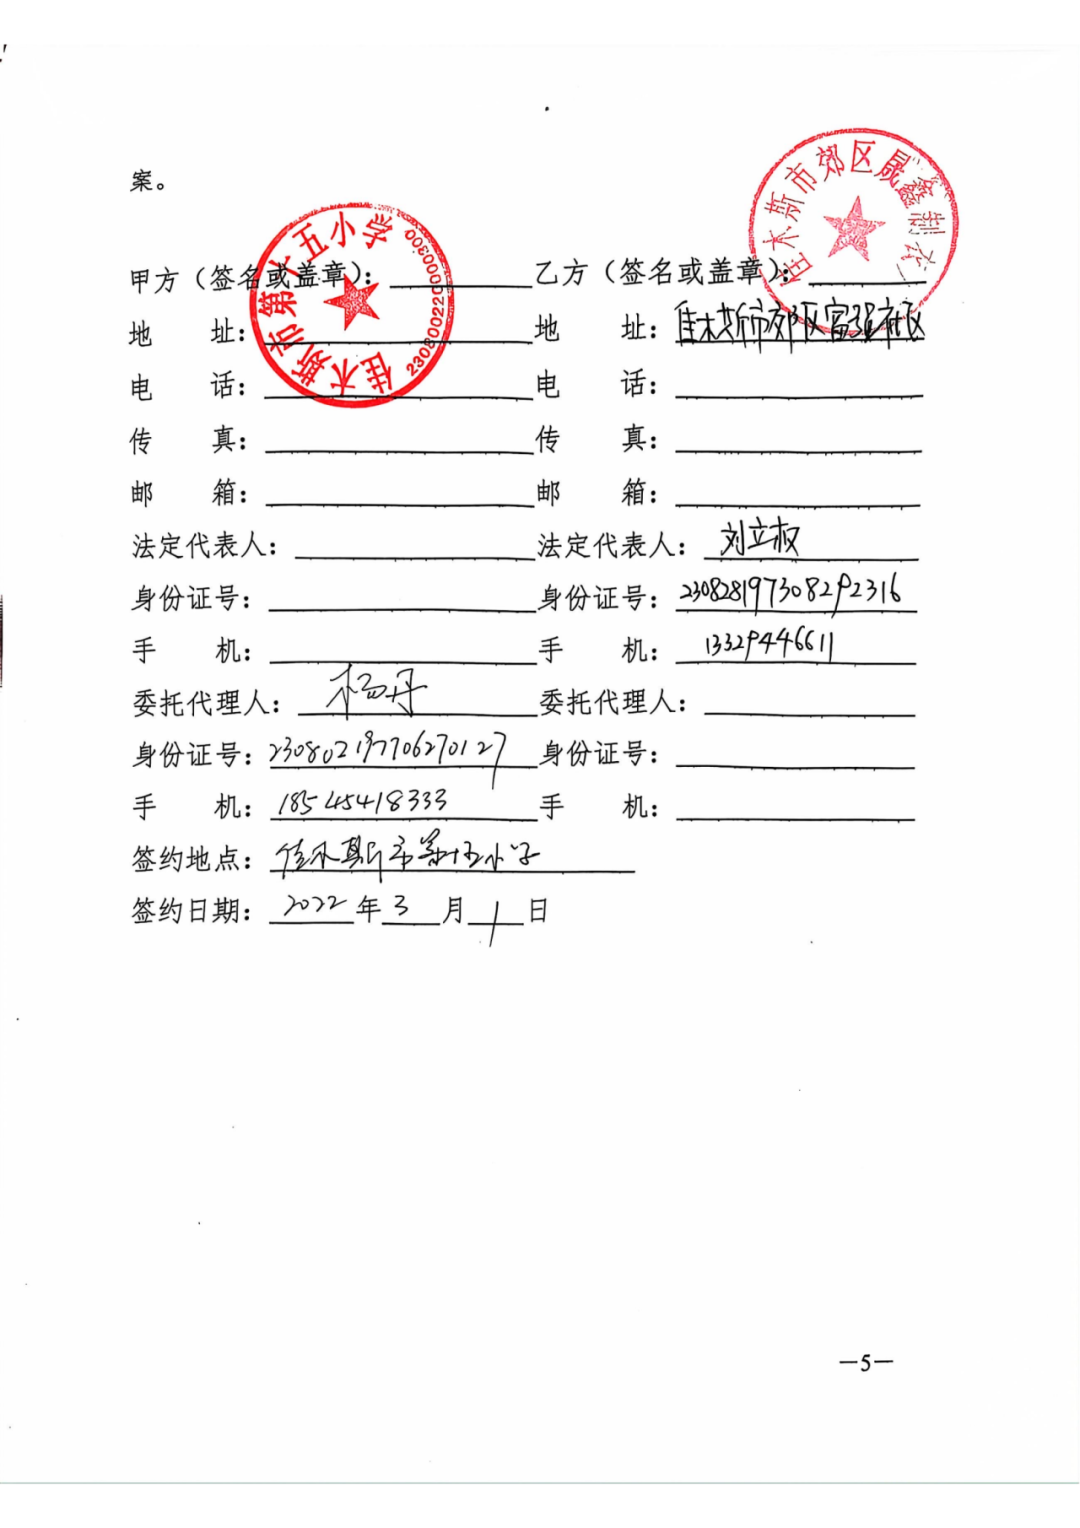 案。
佳木斯市第十五小学
2308002200000300
佳木斯市郊区晟鑫制衣厂
甲方（签名或盖章）：
乙方（签名或盖章）：
地 址：
地 址：佳木斯市郊区富强社区
电 话：
电 话：
传 真：
传 真：
邮 箱：
邮 箱：
法定代表人：
法定代表人：刘立权
身份证号：
身份证号：230828197308292316
手 机：
手 机：13329446611
委托代理人：杨丹
委托代理人：
身份证号：230802197706270127
身份证号：
手 机：18545418333
手 机：
签约地点：佳木斯市第十五小学
签约日期：2022年3月1日
—5—